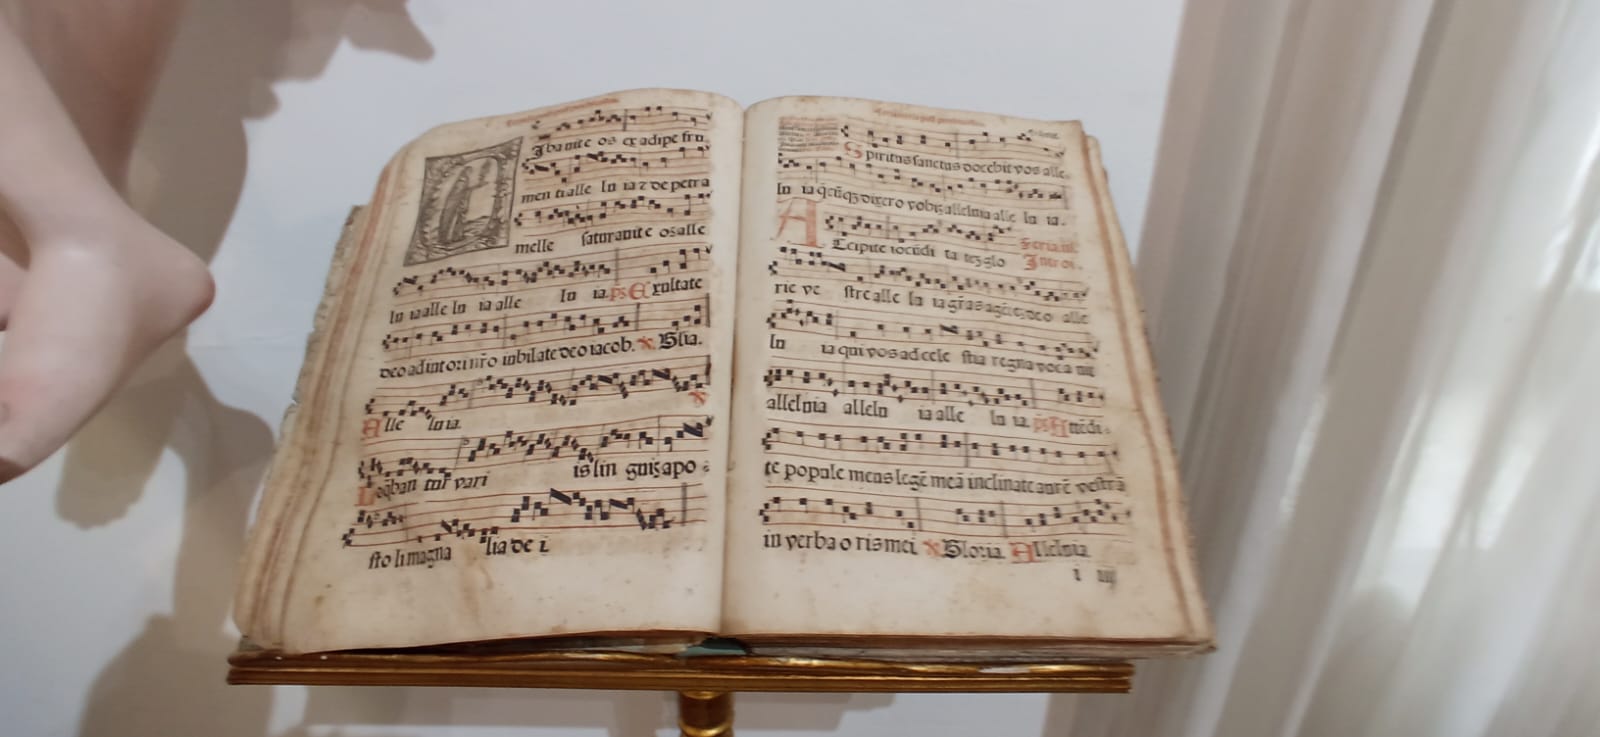 Cibauit eos ex adipe fru
menti alle lu ia z de petra
melle saturauit eos alle
lu ia alle lu ia alle lu ia. ps Exultate
deo adiutori nr̃o iubilate deo iacob. Glia.
Alle luia.
Loq̃ban tur vari is lin guis apo
sto li magna lia de i
Spiritus sanctus docebit vos alle
lu ia q̃cũq̃ dixero vobis alleluia alle lu ia.
Feria iii.
Accipite iocũdi ta tez glo Introi.
rie ve stre alle lu ia gr̃as agẽtes deo alle
lu ia qui vos ad cele stia regna voca uit
alleluia allelu ia alle lu ia. ps Atẽdi
te popule meus legẽ meã inclinate aurẽ vestrã
in verba o ris mei Gloria. Alleluia.